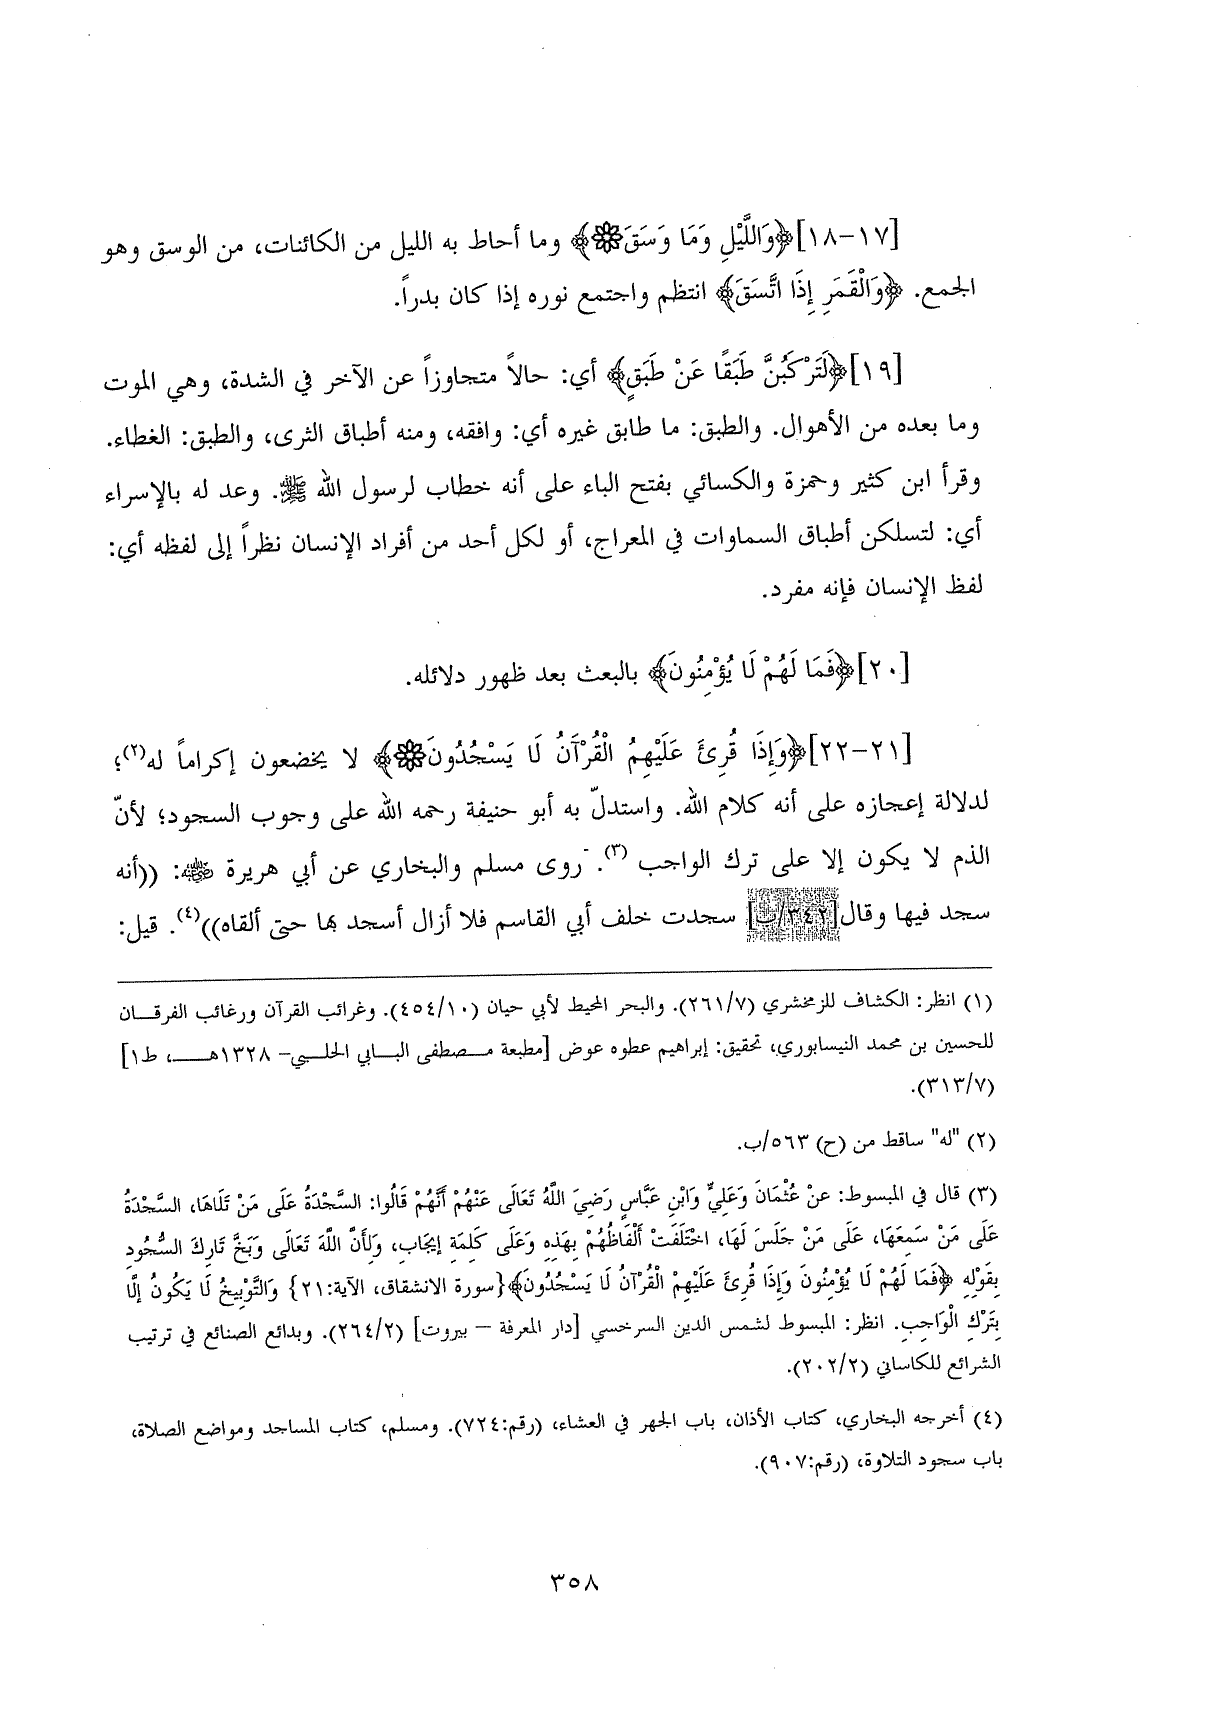 [١٧-١٨]﴿وَاللَّيْلِ وَمَا وَسَقَ۞﴾ وما أحاط به الليل من الكائنات، من الوسق وهو
الجمع. ﴿وَالْقَمَرِ إِذَا اتَّسَقَ﴾ انتظم واجتمع نوره إذا كان بدراً.
[١٩]﴿لَتَرْكَبُنَّ طَبَقًا عَنْ طَبَقٍ﴾ أي: حالاً متجاوزاً عن الآخر في الشدة، وهي الموت
وما بعده من الأهوال. والطبق: ما طابق غيره أي: وافقه، ومنه أطباق الثرى، والطبق: الغطاء.
وقرأ ابن كثير وحمزة والكسائي بفتح الباء على أنه خطاب لرسول الله ﷺ. وعد له بالإسراء
أي: لتسلكن أطباق السماوات في المعراج، أو لكل أحد من أفراد الإنسان نظراً إلى لفظه أي:
لفظ الإنسان فإنه مفرد.
[٢٠]﴿فَمَا لَهُمْ لَا يُؤْمِنُونَ﴾ بالبعث بعد ظهور دلائله.
[٢١-٢٢]﴿وَإِذَا قُرِئَ عَلَيْهِمُ الْقُرْآنُ لَا يَسْجُدُونَ۞﴾ لا يخضعون إكراماً له(٢)؛
لدلالة إعجازه على أنه كلام الله. واستدلّ به أبو حنيفة رحمه الله على وجوب السجود؛ لأنّ
الذم لا يكون إلا على ترك الواجب (٣). روى مسلم والبخاري عن أبي هريرة ﷺ: ((أنه
سجد فيها وقال[٣٤٢/ب] سجدت خلف أبي القاسم فلا أزال أسجد بها حتى ألقاه))(٤). قيل:
(١) انظر: الكشاف للزمخشري (٢٦١/٧). والبحر المحيط لأبي حيان (٤٥٤/١٠). وغرائب القرآن ورغائب الفرقـــان
للحسين بن محمد النيسابوري، تحقيق: إبراهيم عطوه عوض [مطبعة مــصطفى البــابي الحلــبي- ١٣٢٨هــــ، ط١]
(٣١٣/٧).
(٢) "له" ساقط من (ح) ٥٦٣/ب.
(٣) قال في المبسوط: عنْ عُثْمَانَ وَعَلِيٍّ وَابْنِ عَبَّاسٍ رَضِيَ اللَّهُ تَعَالَى عَنْهُمْ أَنَّهُمْ قَالُوا: السَّجْدَةُ عَلَى مَنْ تَلَاهَا، السَّجْدَةُ
عَلَى مَنْ سَمِعَهَا، عَلَى مَنْ جَلَسَ لَهَا، اخْتَلَفَتْ أَلْفَاظُهُمْ بِهَذِهِ وَعَلَى كَلِمَةِ إيجَابِ، وَلِأَنَّ اللَّهَ تَعَالَى وَبَخَّ تَارِكَ السُّجُودِ
بِقَوْلِهِ ﴿فَمَا لَهُمْ لَا يُؤْمِنُونَ وَإِذَا قُرِئَ عَلَيْهِمْ الْقُرْآنُ لَا يَسْجُدُونَ﴾{سورة الانشقاق، الآية:٢١} وَالتَّوْبِيخُ لَا يَكُونُ إلَّا
بِتَرْكِ الْوَاجِبِ. انظر: المبسوط لشمس الدين السرخسي [دار المعرفة – بيروت] (٢٦٤/٢). وبدائع الصنائع في ترتيب
الشرائع للكاساني (٢٠٢/٢).
(٤) أخرجه البخاري، كتاب الأذان، باب الجهر في العشاء، (رقم:٧٢٤). ومسلم، كتاب المساجد ومواضع الصلاة،
باب سجود التلاوة، (رقم:٩٠٧).
٣٥٨